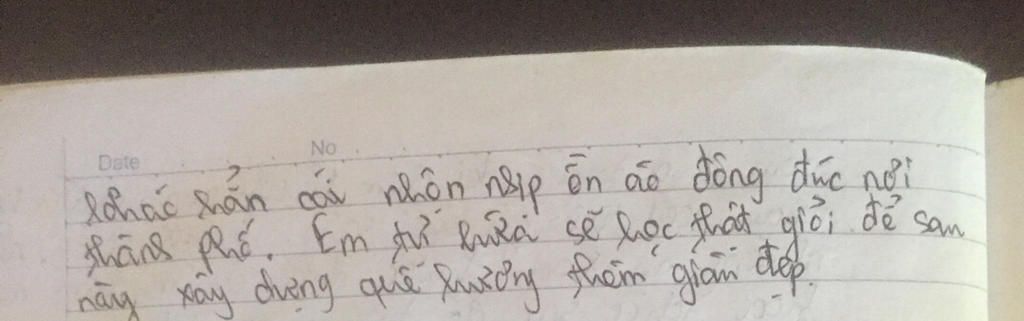 Date No
khác hẳn cái nhộn nhịp ồn ào đông đúc nơi
thành phố. Em tự hứa sẽ học thật giỏi để sau
này xây dựng quê hương thêm giàu đẹp.